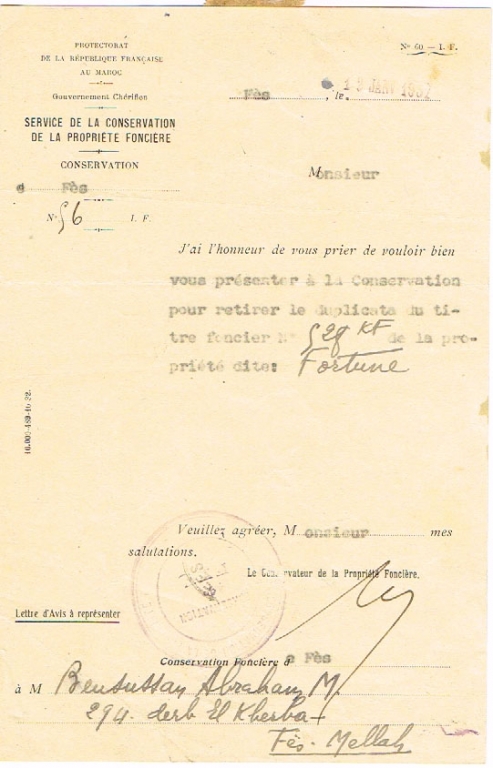 PROTECTORAT
DE LA RÉPUBLIQUE FRANÇAISE
AU MAROC
Nº 60. — I. F.
Gouvernement Chérifien
Fès , le 13 JANV
SERVICE DE LA CONSERVATION
DE LA PROPRIÉTÉ FONCIÈRE
CONSERVATION
Fès
Monsieur
Nº 56 I. F.
J'ai l'honneur de vous prier de vouloir bien
vous présenter à la Conservation
pour retirer le duplicata du ti-
tre foncier Nº KF de la pro-
priété dite: Fortune
Veuillez agréer, Monsieur mes
salutations.
Le Conservateur de la Propriété Foncière.
Lettre d'Avis à représenter
Conservation Foncière à Fès
à M Bensussan Abraham M.
294. derb El Kherba
Fès. Mellah